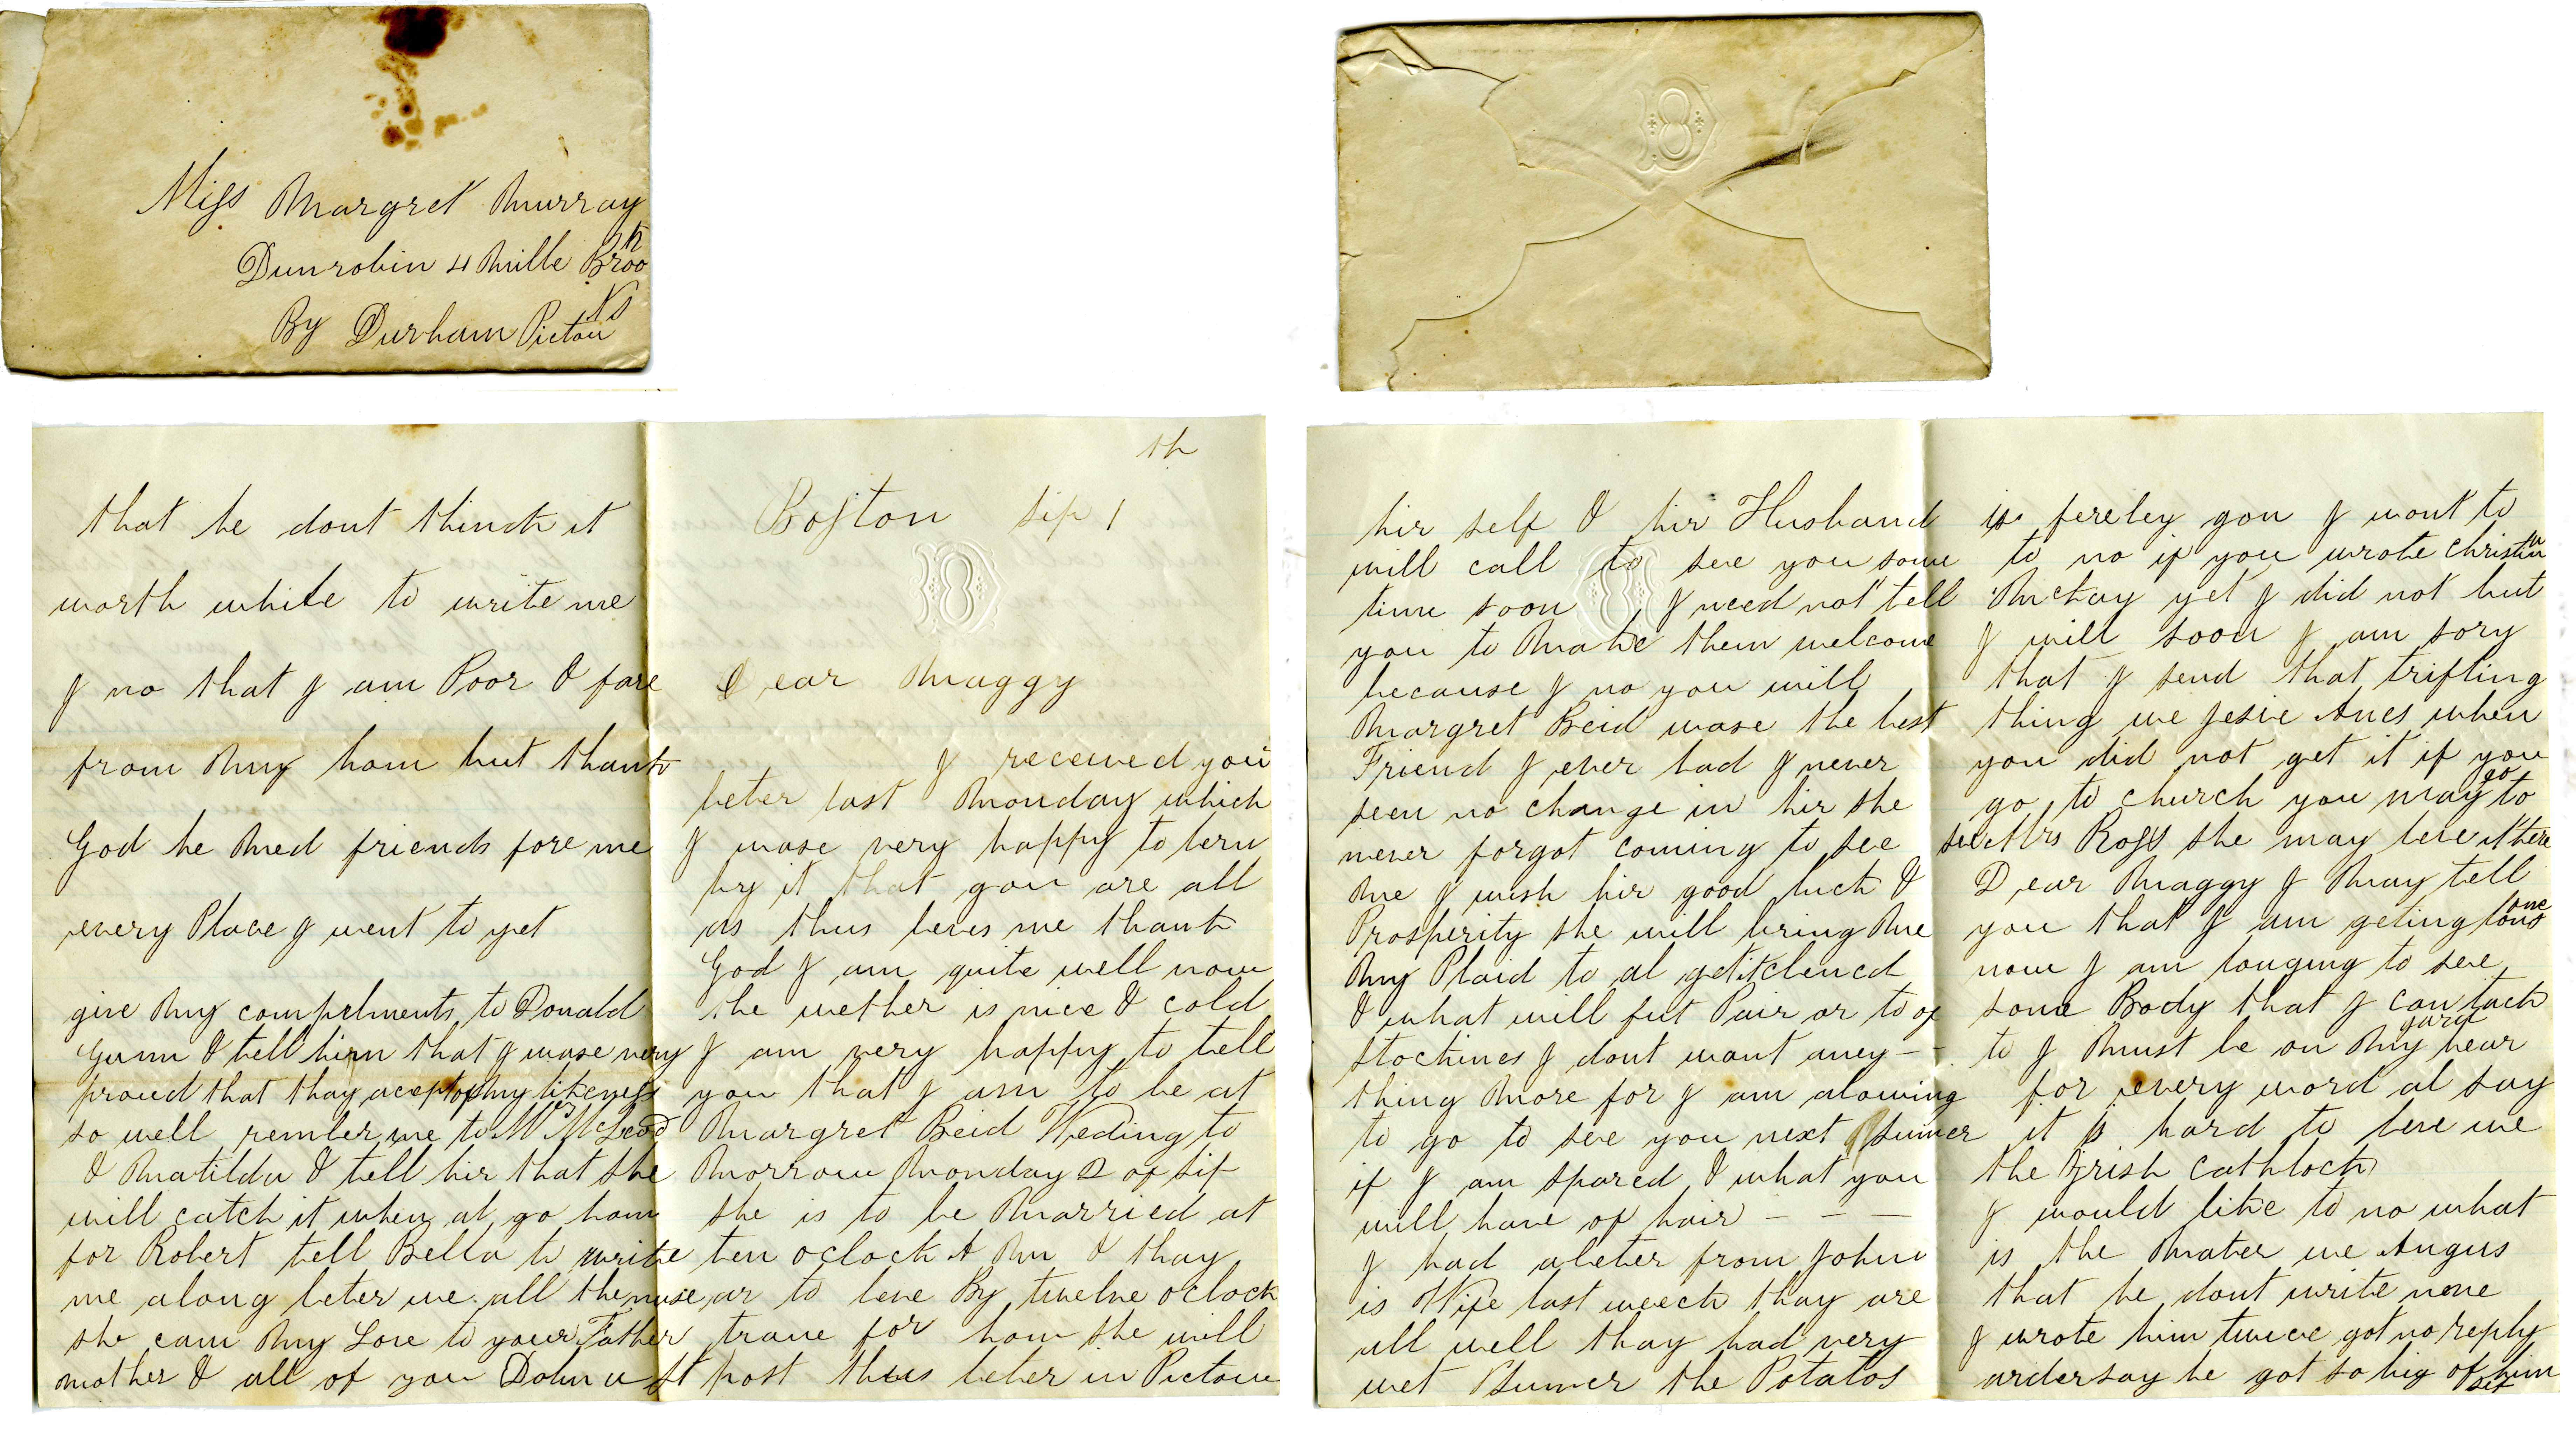 Miss Margret Murray
Dunrobin 4 Mille Brook
By Durham Pictou NS
Boston Sip 1th
Dear Maggy
I received you
leter last Monday which
I wase very happy to lern
by it that you are all
as thus leves me thank
God I am quite well now
the wether is nice & cold
I am very happy to tell
you that I am to be at
Margret Beid Weding to
Morrow Monday 2 of Sip
she is to be Married at
ten oclock A Mn & thay
ar to leve By twelve oclock
trane for hom she will
post thus leter in Pictou
hir self & hir Husband
will call to see you some
time soon I need not tell
you to Make them welcome
because I no you will
Margret Beid wase the best
Friend I ever had I never
seen no change in hir she
never forgot coming to see
Me I wish hir good luck &
Prosperity she will bring Me
My Plaid to al get it clened
& what will fut Pair or to of
Stockines I dont want aney--
thing More for I am alowing
to go to see you next Sumer
if I am spared & what you
will have of hair - - -
I had a leter from John
is Wife last weeck thay are
all well thay had very
wet Sumer the Potatos
is fereley gon I want to
to no if you wrote Christin
Mckay yet I did not but
I will soon I am sory
that I send that trifling
thing we Jesie Anes when
you did not get it if you
go to church you may go to
see Mrs Ross she may leve it there
Dear Maggy I May tell
you that I am geting lonsome
now I am longing to see
some Body that I can tack
to I Must be on My gard hear
for every word al say
it is hard to leve we
the Irish Cathlock
I would like to no what
is the Mater we Angus
that he dont write none
I wrote him twice got no reply
ardersay he got so big of him self
that he dont thinck it
worth while to write me
I no that I am Poor & fare
from My hom but thank
God he Med friends fore me
every Place I went to yet
give My compelments to Donald
Gunn & tell him that I wase very
proud that thay acept of My likeness
so well rember me to Ms McLeod
& Matilda & tell hir that she
will catch it when al go hom
for Robert tell Bella to write
me along leter we all the nuse
she cam My Love to your Father
mother & all of you Dohn a St